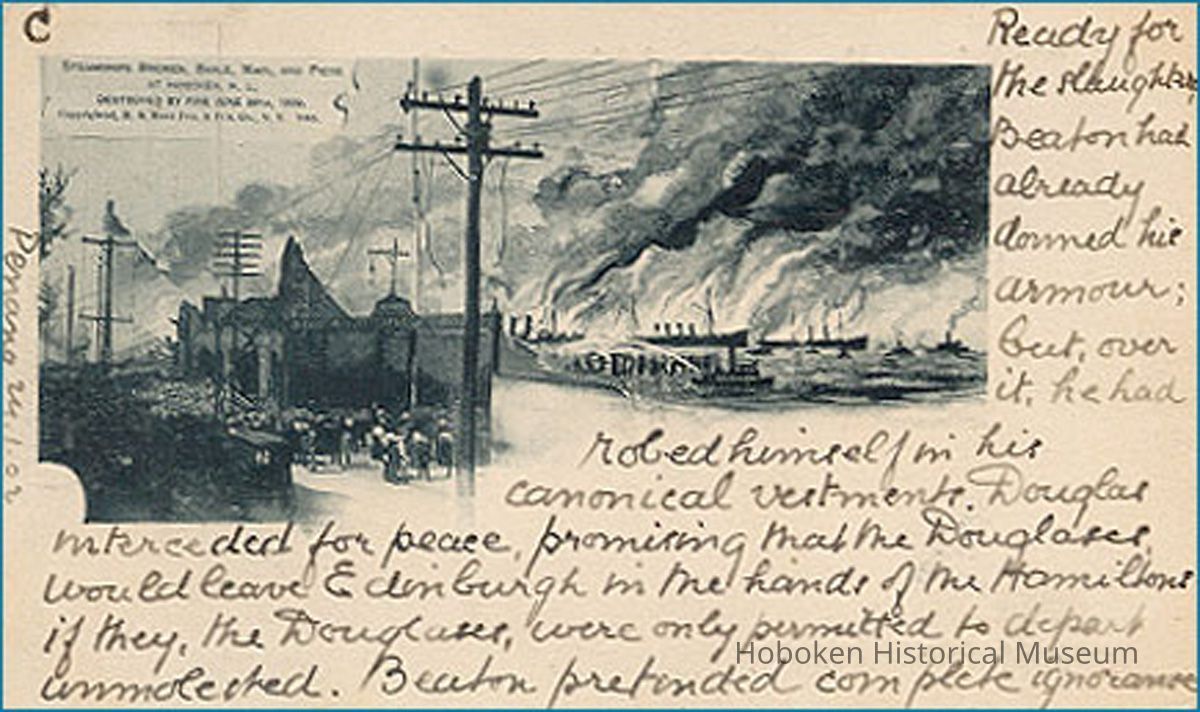 C
Steamships Bremen, Saale, Main, and Piers
at Hoboken, N. J.,
Destroyed by Fire June 30th, 1900.
Ready for
the slaughter,
Beaton had
already
donned his
armour;
but, over
it, he had
robed himself in his
canonical vestments. Douglas
interceded for peace, promising that the Douglases
would leave Edinburgh in the hands of the Hamiltons
if they, the Douglases, were only permitted to depart
unmolested. Beaton pretended complete ignorance
Hoboken Historical Museum